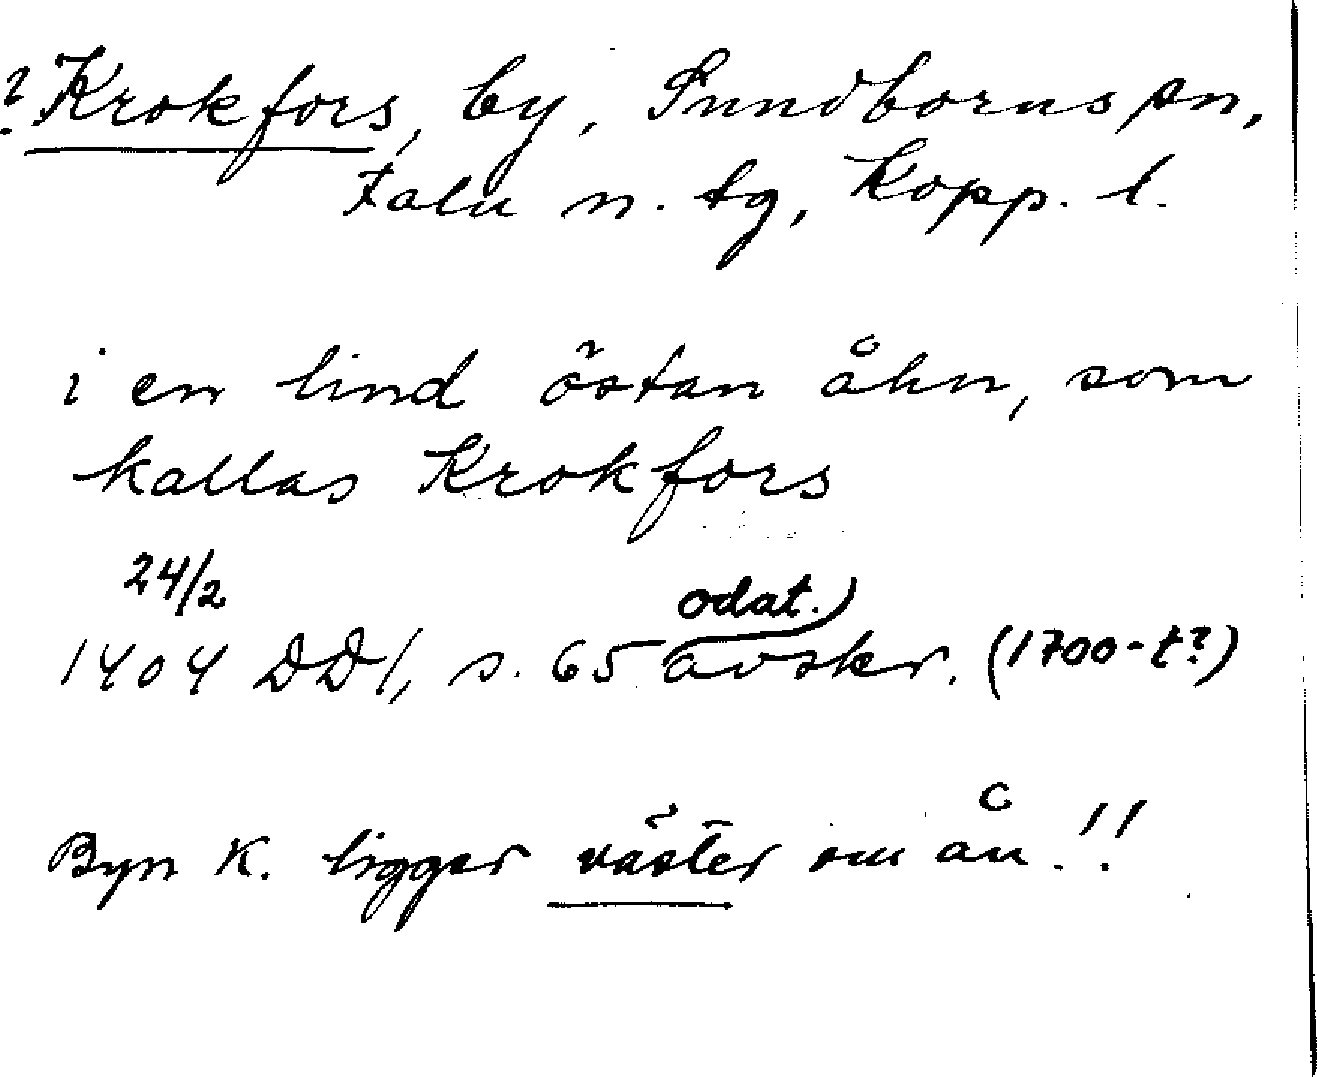 ? Krokfors, by, Sundborns sn,
Falu n. tg, Kopp. l.
i en lind östan åhn, som
kallas Krokfors
24/2
odat.)
1404 DD1, s. 65 avskr. (1700-t?)
Byn K. ligger väster om ån.!!